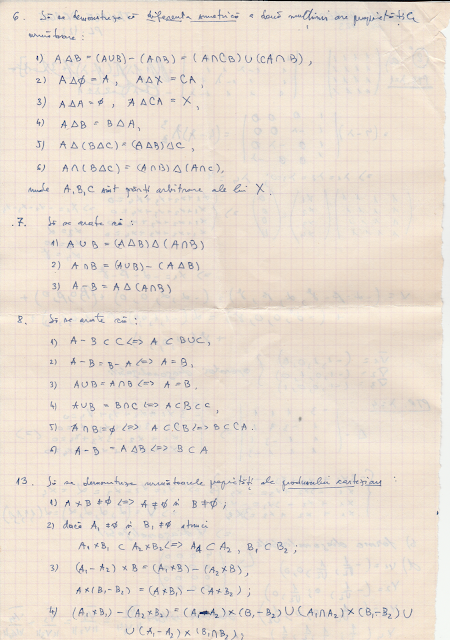 6. Să se demonstreze că diferența simetrică a două mulțimi are proprietățile
următoare :
1) A∆B = (A∪B) − (A∩B) = (A∩CB) ∪ (CA∩B),
2) A∆∅ = A, A∆X = CA,
3) A∆A = ∅, A∆CA = X,
4) A∆B = B∆A,
5) A∆(B∆C) = (A∆B)∆C,
6) A∩(B∆C) = (A∩B)∆(A∩C),
unde A,B,C sînt părți arbitrare ale lui X.
7. Să se arate că :
1) A∪B = (A∆B)∆(A∩B)
2) A∩B = (A∪B) − (A∆B)
3) A−B = A∆(A∩B)
8. Să se arate că :
1) A−B⊂C <=> A⊂B∪C,
2) A−B = B−A <=> A=B,
3) A∪B = A∩B <=> A=B.
4) A∪B = B∩C <=> A⊂B⊂C,
5) A∩B=∅ <=> A⊂CB <=> B⊂CA.
6) A−B = A∆B <=> B⊂A
13. Să se demonstreze următoarele proprietăți ale produsului cartezian :
1) A×B≠∅ <=> A≠∅ și B≠∅ ;
2) dacă A₁≠∅ și B₁≠∅ atunci
A₁×B₁ ⊂ A₂×B₂ <=> A₁⊂A₂, B₁⊂B₂ ;
3) (A₁−A₂)×B = (A₁×B) − (A₂×B),
A×(B₁−B₂) = (A×B₁) − (A×B₂) ;
4) (A₁×B₁) − (A₂×B₂) = (A₁−A₂)×(B₁−B₂) ∪ (A₁∩A₂)×(B₁−B₂) ∪
∪ (A₁−A₂)×(B₁∩B₂) ;